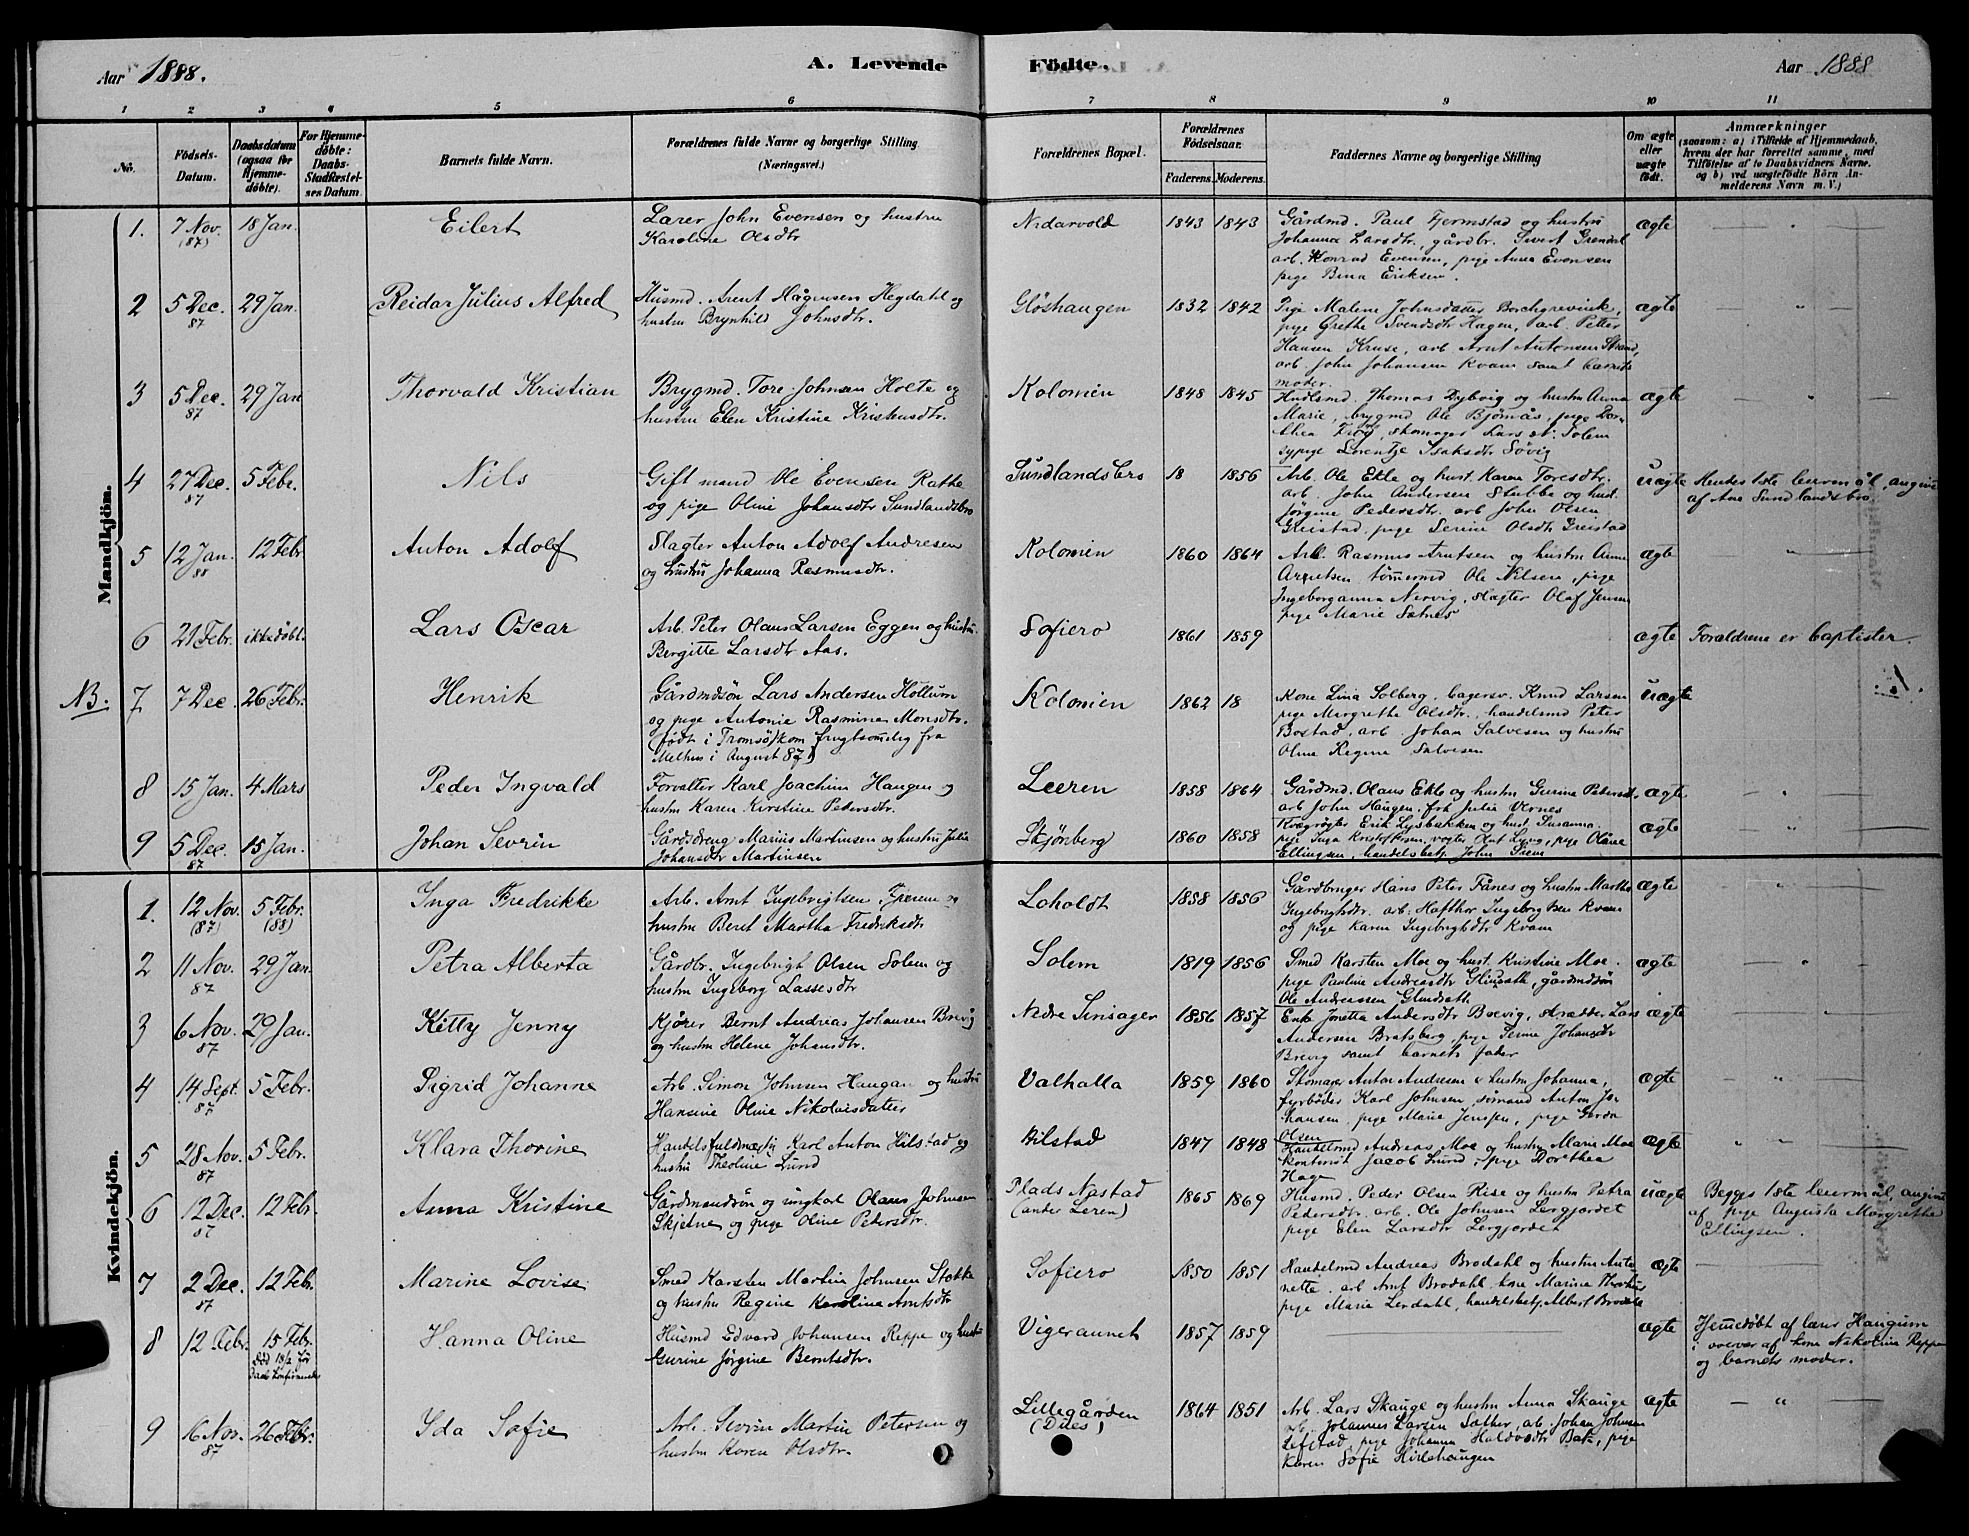 Aar 1888.
A. Levende Födte.
Aar 1888
1 2 3 4 5 6 7 8 9 10 11
No.
Födsels-
Datum.
Daabsdatum
(ogsaa for
Hjemme-
döbte).
For Hjemme-
döbte:
Daabs-
Stadfæstel-
ses Datum.
Barnets fulde Navn.
Forældrenes fulde Navne og borgerlige Stilling
(Næringsvei.)
Forældrenes Bopæl.
Forældrenes
Födselsaar.
Faderens. Moderens.
Faddernes Navne og borgerlige Stilling
Om ægte
eller
uægte
født.
Anmærkninger
(saasom: a) i Tilfælde af Hjemmedaab,
hvem der har forrettet samme, med
Tilföielse af to Daabsvidners Navne,
og b) ved uægtefödte Börn An-
melderens Navn m. V.)
Mandkjön.
1. 7 Nov. (87) 18 Jan. Eilert
Lærer John Evensen og hustru
Karoline Olsdtr
Nidarvold 1843 1843
Gårdmd. Paul Fjermstad og hustru
Johanna Larsdtr, gårdbr. Sivert Grendal
arb. Konrad Evensen, pige Anna Evensen
pige Bina Eriksen.
ægte
2 5 Dec. 87 29 Jan. Reidar Julius Alfred
Husmd. Arent Hågensen Hegdahl og
hustru Brynhild Johnsdtr.
Glöshaugen 1832 1842
Pige Malene Johnsdatter Borchgrevink,
pige Grethe Svendsdtr Hagen, arb. Petter
Hansen Kruse, arb Arnt Antonsen Strand,
arb. John Johansen Kvam samt barnets
moder.
ægte
3 5 Dec. 87 29 Jan Thorvald Kristian
Brygmd. Tore Johnsen Holte og
hustru Elen Kristine Kristensdtr.
Kolonien 1848 1845
Hndlsmd. Thomas Dybvig og hustru Anna
Marie, brygmd Ole Bjørnås, pige Dor-
thea Krog, skomager Lars N. Solem
sypige Lorentze Isaksdtr Søvig
ægte
4 27 Dec. 87 5 Febr. Nils
Gift mand Ole Evensen Rathe
og pige Oline Johansdtr Sundlandsbro
Sundlandsbro 18 1856
Arb. Ole Ekle og hust. Karen Toresdtr.
arb. John Andersen Stubbe og hust.
Jørgine Pedersdtr. arb John Olsen
Greistad, pige Serine Olsdtr Greistad
uægte
Hendes 1ste leiermål, angivet
af Ane Sundlandsbro.
5 12 Jan. 88 12 Febr. Anton Adolf
Slagter Anton Adolf Andresen
og hustru Johanna Rasmusdtr.
Kolonien 1860 1864
Arb. Rasmus Arntsen og hustru Anne
Arntsen, tömermd Ole Nilsen, pige
Ingeborganna Nervig, slagter Olaf Jensen
pige Marie Sætnes
ægte
6 21 Febr. ikke døbt. Lars Oscar
Arb. Peter Olaus Larsen Eggen og hustru
Bergitte Larsdtr Aas.
Sofiero 1861 1859
ægte
Forældrene er baptister.
NB. 7 7 Dec. 26 Febr. Henrik
Gårdmdsön Lars Andersen Hollum
og pige Antonie Rasmine Monsdtr.
(født i Tromsö) kom frugtsomelig fra
Melhus i August 87)
Kolonien 1862 18
Kone Lina Solberg, bagersv. Knud Larsen
pige Margrethe Olsdtr., handelsmd Peter
Bostad, arb. Johan Salvesen og hustru
Oline Regine Salvesen
uægte
8 15 Jan. 4 Mars Peder Ingvald
Forvalter Karl Joachim Haugen og
hustru Karen Kirstine Pedersdtr.
Leeren 1858 1864
Gårdmd. Olaus Ekle og hustru Gurine Pedersdtr.
arb John Haugen, frk Julia Vernes
ægte
9 5 Dec. 87 15 Jan. Johan Sevrin
Gårdsdreng Marius Martinsen og hustru Julia
Johansdtr Martinsen
Stjönberg 1860 1858
Kvægrögter Erik Lysbakken og hust. Susanna.
pige Inga Kristoffersen, vogter Olut Lyng, pige Olave
Ellingsen, handelsbetj. John Siem
ægte
Kvindekjön.
1. 12 Nov. (87) 5 Febr. (88) Inga Fredrikke
Arb. Arnt Ingebrigtsen Fjærem og
hustru Beret Martha Fredriksdtr
Loholdt 1858 1856
Gårdbruger Hans Peter Fånes og hustru Martha
Ingebrigtsdtr. arb. Hafthor Ingebrigtsen Kvam
og pige Karen Ingebrigtsdtr Kvam
ægte
2 11 Nov. 87 29 Jan. Petra Alberta
Gårdbr. Ingebrigt Olsen Solem og
hustru Ingeborg Lassesdtr
Solem 1819 1856
Smed Karsten Moe og hust. Kristine Moe.
pige Pauline Andreasdtr Gludsath, gårdmdsön
Ole Andreassen Gludsath
ægte
3 6 Nov. 87 29 Jan. Kitty Jenny
Kjörer Bernt Andreas Johansen Brevig
og hustru Helene Johansdtr.
Nedre Sinsager 1856 1857
Enke Jonetta Andersdtr Brevig, skrædder Lars
Andersen Bratsberg, pige Jenine Johansdtr
Brevig samt barnets fader
ægte
4 14 Sept. 87 5 Febr. Sigrid Johanne
Arb. Simon Johnsen Haugan og hustru
Hansine Oline Nikolaisdatter
Valhalla 1859 1860
Skomager Anton Andresen & hustru Johanna,
fyrböder Karl Johnsen, sömand Anton Jo-
hansen, pige Marie Jenssen, pige Gerda
Olsen
ægte
5 28 Nov. 87 5 Febr. Klara Thorine
Handelsfuldmægtig Karl Anton Hilstad og
hustru Theoline Lund
Hilstad 1847 1848
Handelsmd Andreas Moe og hustru Marie Moe
kontorist Jacob Lund, pige Dorthea
Hage
ægte
6 12 Dec. 87 12 Febr. Anna Kristine
Gårdmandsön og ungkarl Olaus Johnsen
Skjetne og pige Oline Petersdtr.
Plads Nåstad
(under Leren) 1865 1869
Husmd. Peder Olsen Rise og hustru Petra
Pedersdtr. arb. Ole Johnsen Lergjordet
pige Elen Larsdtr Lergjordet
uægte
Begges 1ste leiermål, angivet
af pige Augusta Margrethe
Ellingsen.
7 2 Dec. 87 12 Febr. Marine Lovise
Smed Karsten Martin Johnsen Stokke
og hustru Regine Karoline Arntsdtr
Sofiero 1850 1851
Handelsmd Andreas Brodahl og hustru Anto-
nette. arb Arnt Brodahl, kone Marina
pige Marie Lerdahl, handelsbetj. Albert Brodahl
ægte
8 12 Febr. 15 Febr. Hanna Oline
Död 18/2 för
Daabs konfirmeredes
Husmd Edvard Johansen Reppe og hustru
Gurine Jørgine Berntsdtr.
Vigeraunet 1857 1859
ægte
Hjemedöbt af lærer Haugum
i overvær af kone Nikoline Reppe
og barnets moder.
9 16 Nov. 87 26 Febr. Ida Sofie
Arb. Sivrin Martin Petersen og
hustru Karen Olsdtr.
Lillegården
(Digs) 1864 1851
Arb. Lars Skauge og hustru Anna Skauge
arb. Johannes Larsen Sæther, arb. Johan Johnsen
Lefstad, pige Johanna Haldorsdtr Bak, pige
Karen Sofie Hirlehaugen
ægte